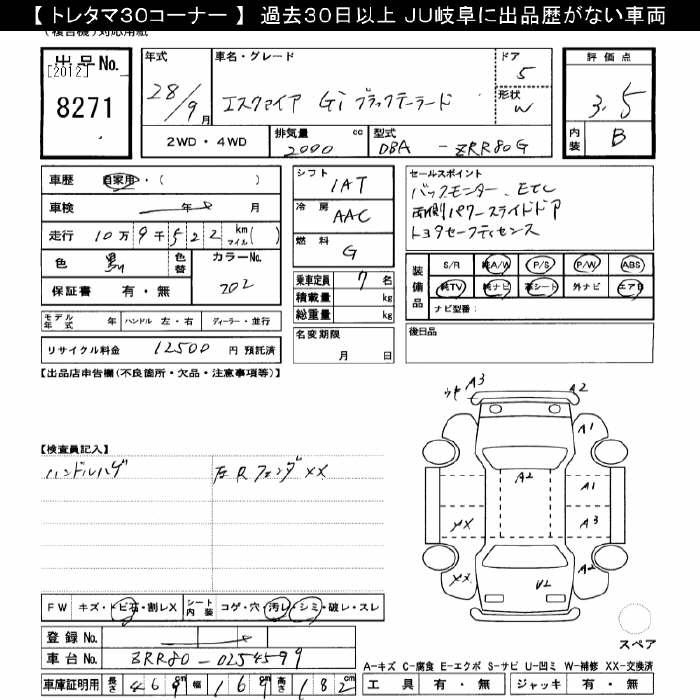 【 トレタマ30コーナー 】 過去30日以上 JU岐阜に出品歴がない車両
出品No.
[2012]
8271
年式
28/9月
車名・グレード
エスクァイア Gi ブラックテーラード
ドア
5
形状
W
評価点
3.5
内装
B
2WD・4WD
排気量
2000
cc
型式
DBA - ZRR80G
車歴 自家用・( )
車検 年 月
走行 10万9千522 km マイル( )
色 黒
色替
カラーNo.
202
保証書 有・無
モデル年式 年 ハンドル 左・右 ディーラー・並行
リサイクル料金 12500 円 預託済
シフト
IAT
冷房
AAC
燃料
G
乗車定員 7 名
積載量 kg
総重量 kg
名変期限
月 日
セールスポイント
バックモニター、ETC
両側パワースライドドア
トヨタセーフティセンス
装備品
S/R 純A/W P/S P/W ABS
純TV 純ナビ 革シート 外ナビ エアB
ナビ型番:
後日品
【出品店申告欄(不良箇所・欠品・注意事項等)】
【検査員記入】
ハンドルハゲ
左Rフェンダ XX
A3
A2
A1
A2
A1
XX
A3
XX
A2
U2
FW キズ・トビ石・割レX
シート内装 コゲ・穴・汚レ・シミ・破レ・スレ
登録 No.
車台 No. ZRR80-0254599
車庫証明用 長さ 469cm 幅 169cm 高さ 182cm
スペア
A-キズ C-腐食 E-エクボ S-サビ U-凹ミ W-補修 XX-交換済
工具 有・無 ジャッキ 有・無